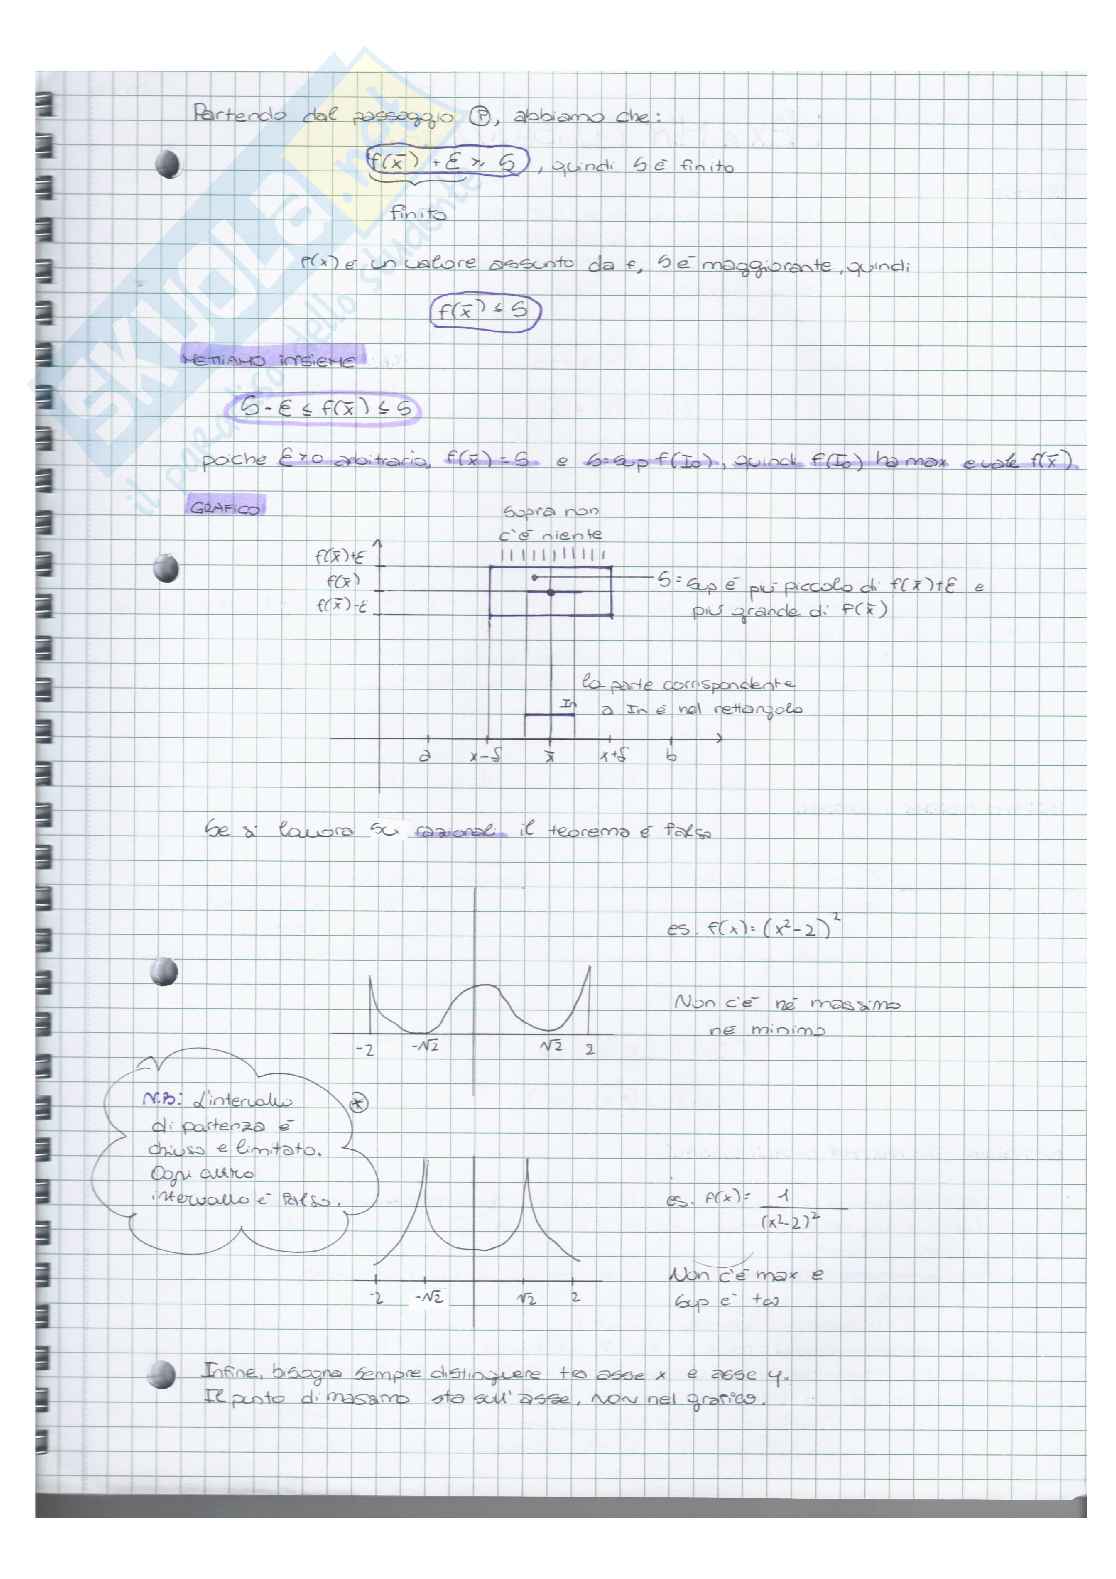 Partendo dal passaggio Ⓟ, abbiamo che:
f(x̄) + ε ≥ S, quindi S è finito
finito
f(x̄) è un valore assunto da f, S è maggiorante, quindi
f(x̄) ≤ S
METTIAMO INSIEME
S - ε ≤ f(x̄) ≤ S
poiché ε>0 arbitrario, f(x̄) = S e S=sup f(I₀), quindi f(I₀) ha max e vale f(x̄)
GRAFICO
sopra non
c'è niente
f(x̄)+ε
f(x̄)
f(x̄)-ε
S = sup è più piccolo di f(x̄)+ε e
più grande di f(x̄)
la parte corrispondente
In
a In è nel rettangolo
a x-δ x̄ x+δ b
Se si lavora su razionali il teorema è falso
es. f(x) = (x²-2)²
Non c'è né massimo
né minimo
-2 -√2 √2 2
N.B: L'intervallo
di partenza è
chiuso e limitato.
Ogni altro
intervallo è falso.
es. f(x) = 1
(x²-2)²
Non c'è max e
sup è +∞
-2 -√2 √2 2
Infine, bisogna sempre distinguere tra asse x e asse y.
Il punto di massimo sta sull'asse, NON nel grafico.
SKUOLA.net
il paradiso dello studente